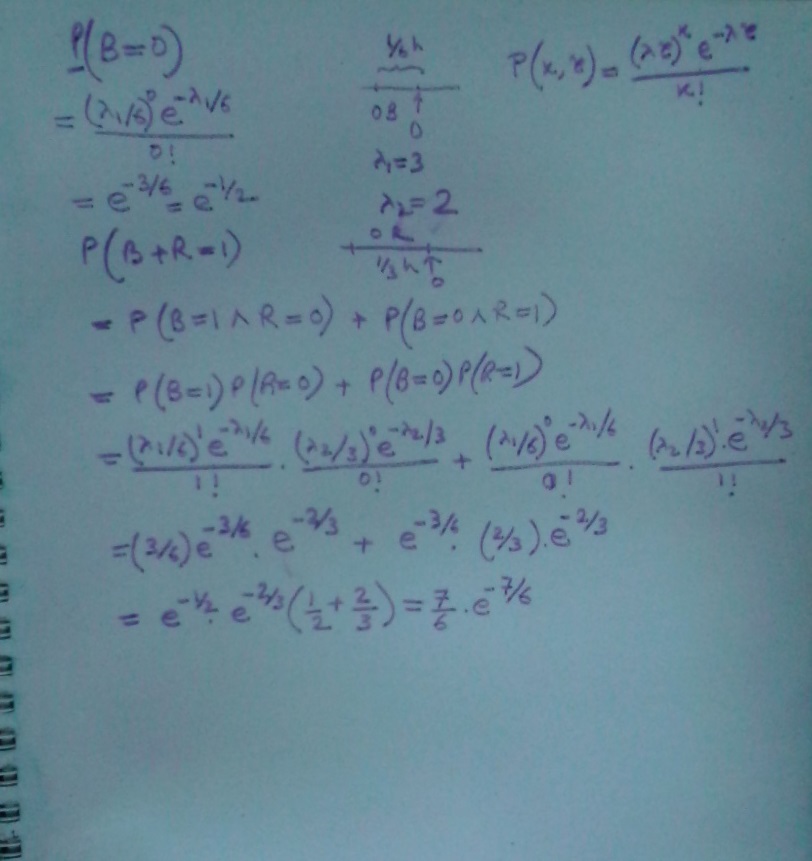 P(B=0)
= (λ₁/6)⁰ e^(-λ₁/6) / 0!
= e^(-3/6) = e^(-1/2)
1/6 h
0B ↑
0
λ₁=3
λ₂=2
0 R
1/3 h ↑
0
P(k, τ) = (λτ)^k e^(-λτ) / k!
P(B+R=1)
= P(B=1 ∧ R=0) + P(B=0 ∧ R=1)
= P(B=1) P(R=0) + P(B=0) P(R=1)
= (λ₁/6)¹ e^(-λ₁/6) / 1! · (λ₂/3)⁰ e^(-λ₂/3) / 0! + (λ₁/6)⁰ e^(-λ₁/6) / 0! · (λ₂/3)¹ · e^(-λ₂/3) / 1!
= (3/6) e^(-3/6) · e^(-2/3) + e^(-3/6) · (2/3) · e^(-2/3)
= e^(-1/2) · e^(-2/3) (1/2 + 2/3) = 7/6 · e^(-7/6)